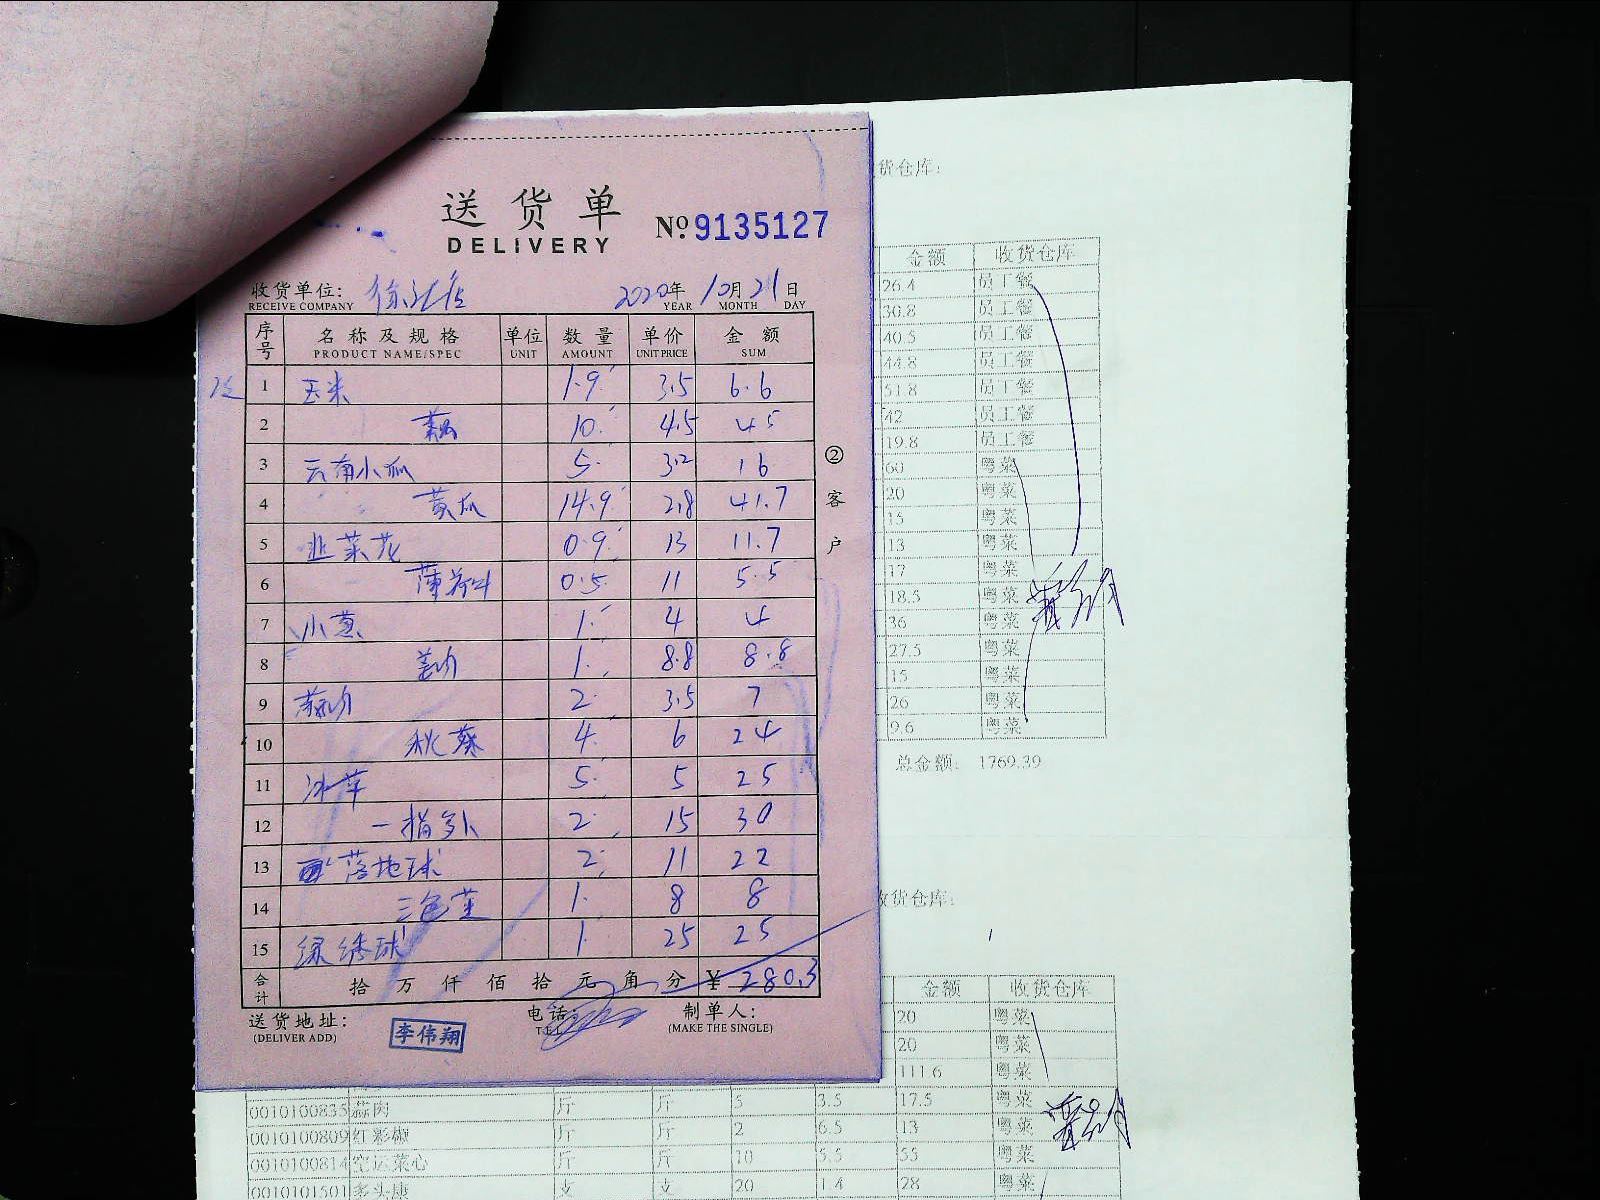 送货单
DELIVERY
№ 9135127
收货单位: 徐汇店 2020年 10月 21日
RECEIVE COMPANY YEAR MONTH DAY
序号 名称及规格 单位 数量 单价 金额
PRODUCT NAME/SPEC UNIT AMOUNT UNIT PRICE SUM
1 玉米 1.9 3.5 6.6
2 藕 10 4.5 45
3 云南小瓜 5 3.2 16
4 黄瓜 14.9 2.8 41.7
5 韭菜花 0.9 13 11.7
6 薄荷叶 0.5 11 5.5
7 小葱 1 4 4
8 姜肉 1 8.8 8.8
9 蒜肉 2 3.5 7
10 秋葵 4 6 24
11 冰草 5 5 25
12 一指 2 15 30
13 落地球 2 11 22
14 三色堇 1 8 8
15 绿绣球 1 25 25
合计 拾 万 仟 佰 拾 元 角 分 ¥ 280.3
送货地址: 电话: 制单人:
(DELIVER ADD) TEL (MAKE THE SINGLE)
李伟翔
②客户
货仓库:
金额 收货仓库
26.4 员工餐
30.8 员工餐
40.5 员工餐
44.8 员工餐
51.8 员工餐
42 员工餐
19.8 员工餐
60 粤菜
20 粤菜
15 粤菜
13 粤菜
17 粤菜
18.5 粤菜
36 粤菜
27.5 粤菜
15 粤菜
26 粤菜
9.6 粤菜
总金额: 1769.39
收货仓库:
金额 收货仓库
20 粤菜
20 粤菜
111.6 粤菜
0010100835 蒜肉 斤 斤 5 3.5 17.5 粤菜
0010100809 红彩椒 斤 斤 2 6.5 13 粤菜
0010100814 空运菜心 斤 斤 10 5.5 55 粤菜
0010101501 多头康 支 支 20 1.4 28 粤菜